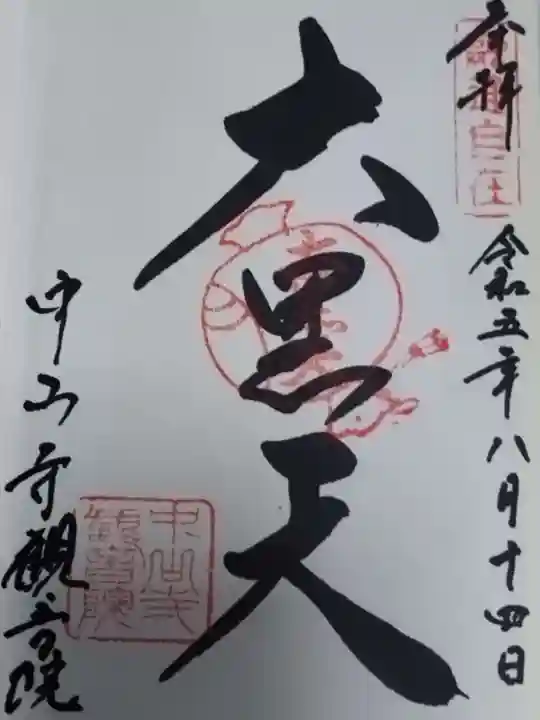 奉拝
令和五年八月十四日
大黒天
中山寺観音院
中山寺
観音院